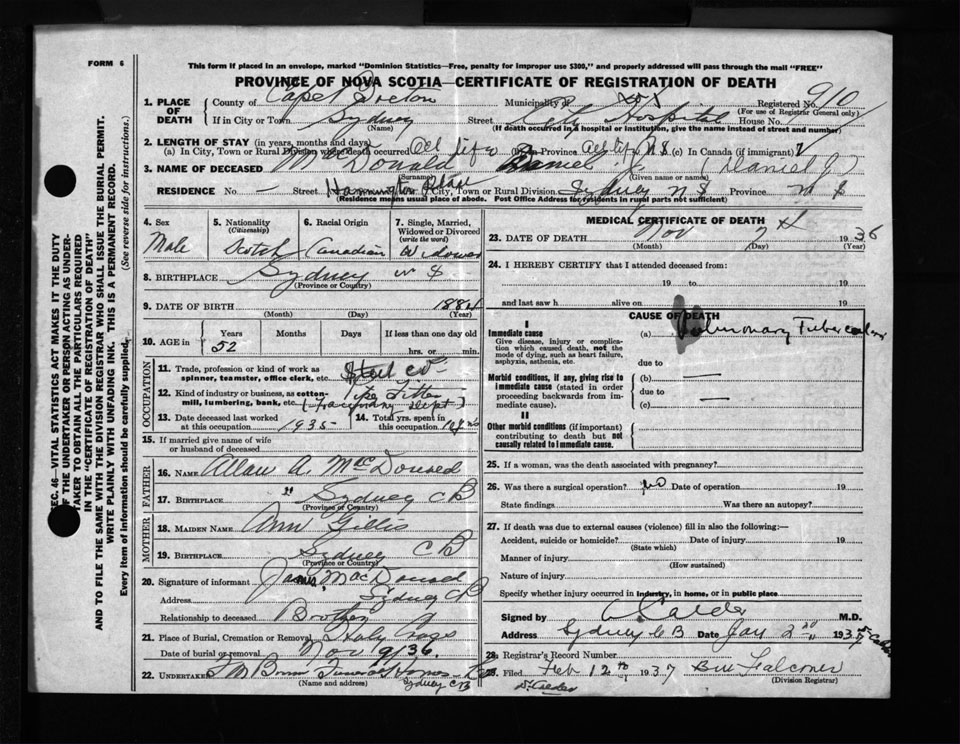 FORM 6
This form if placed in an envelope, marked "Dominion Statistics—Free, penalty for improper use $300," and properly addressed will pass through the mail "FREE"
PROVINCE OF NOVA SCOTIA—CERTIFICATE OF REGISTRATION OF DEATH
1. PLACE OF DEATH
County of Cape Breton Municipality of Registered No. 910
(For use of Registrar General only)
If in City or Town Sydney Street City Hospital House No.
(Name) (If death occurred in a hospital or institution, give the name instead of street and number)
2. LENGTH OF STAY (in years, months and days)
(a) In City, Town or Rural Division where death occurred All life (b) in Province All life N S (c) In Canada (if immigrant)
3. NAME OF DECEASED McDonald Daniel J. (Daniel J)
(Surname) (Given name or names)
RESIDENCE No. — Street City, Town or Rural Division Sydney N S Province N S
(Residence means usual place of abode. Post Office Address for residents in rural parts not sufficient)
4. Sex
Male
5. Nationality
(Citizenship)
Scotch
6. Racial Origin
Canadian
7. Single, Married, Widowed or Divorced
(write the word)
Widower
8. BIRTHPLACE Sydney N S
(Province or Country)
9. DATE OF BIRTH 1884
(Month) (Day) (Year)
10. AGE in
Years Months Days If less than one day old
52 hrs. or min.
OCCUPATION
11. Trade, profession or kind of work as spinner, teamster, office clerk, etc. Steel Co
12. Kind of industry or business, as cotton-mill, lumbering, bank, etc. Pipe Fitter
13. Date deceased last worked at this occupation 1935
14. Total yrs. spent in this occupation
15. If married give name of wife or husband of deceased
FATHER
16. NAME Allan A. MacDonald
17. BIRTHPLACE " Sydney C B
(Province or Country)
MOTHER
18. MAIDEN NAME Ann Gillis
19. BIRTHPLACE Sydney C B
(Province or Country)
20. Signature of informant James MacDonald
Address Sydney C B
Relationship to deceased Brother
21. Place of Burial, Cremation or Removal Holy Cross
Date of burial or removal Nov 9/36.
22. UNDERTAKER Funeral Home
(Name and address) Sydney C B
MEDICAL CERTIFICATE OF DEATH
23. DATE OF DEATH Nov 7th 1936
(Month) (Day) (Year)
24. I HEREBY CERTIFY that I attended deceased from:
19 to 19
and last saw h alive on 19
CAUSE OF DEATH
I
Immediate cause
Give disease, injury or complication which caused death, not the mode of dying, such as heart failure, asphyxia, asthenia, etc.
(a) Pulmonary Tuberculosis
due to
Morbid conditions, if any, giving rise to immediate cause (stated in order proceeding backwards from immediate cause).
(b) —
due to
(c) —
II
Other morbid conditions (if important) contributing to death but not causally related to immediate cause.
25. If a woman, was the death associated with pregnancy?
26. Was there a surgical operation? no Date of operation 19
State findings Was there an autopsy?
27. If death was due to external causes (violence) fill in also the following:—
Accident, suicide or homicide? Date of injury 19
(State which)
Manner of injury
(How sustained)
Nature of injury
Specify whether injury occurred in industry, in home, or in public place
Signed by A Calder M.D.
Address Sydney C B Date Jan 2 1937
28. Registrar's Record Number
29. Filed Feb 12th 1937 Falconer
(Division Registrar)
Dr Calder
SEC. 46—VITAL STATISTICS ACT MAKES IT THE DUTY
OF THE UNDERTAKER OR PERSON ACTING AS UNDERTAKER TO OBTAIN ALL THE PARTICULARS REQUIRED
IN THE "CERTIFICATE OF REGISTRATION OF DEATH"
AND TO FILE THE SAME WITH THE DIVISION REGISTRAR WHO SHALL ISSUE THE BURIAL PERMIT.
WRITE PLAINLY WITH UNFADING INK. THIS IS A PERMANENT RECORD.
Every item of information should be carefully supplied. (See reverse side for instructions.)